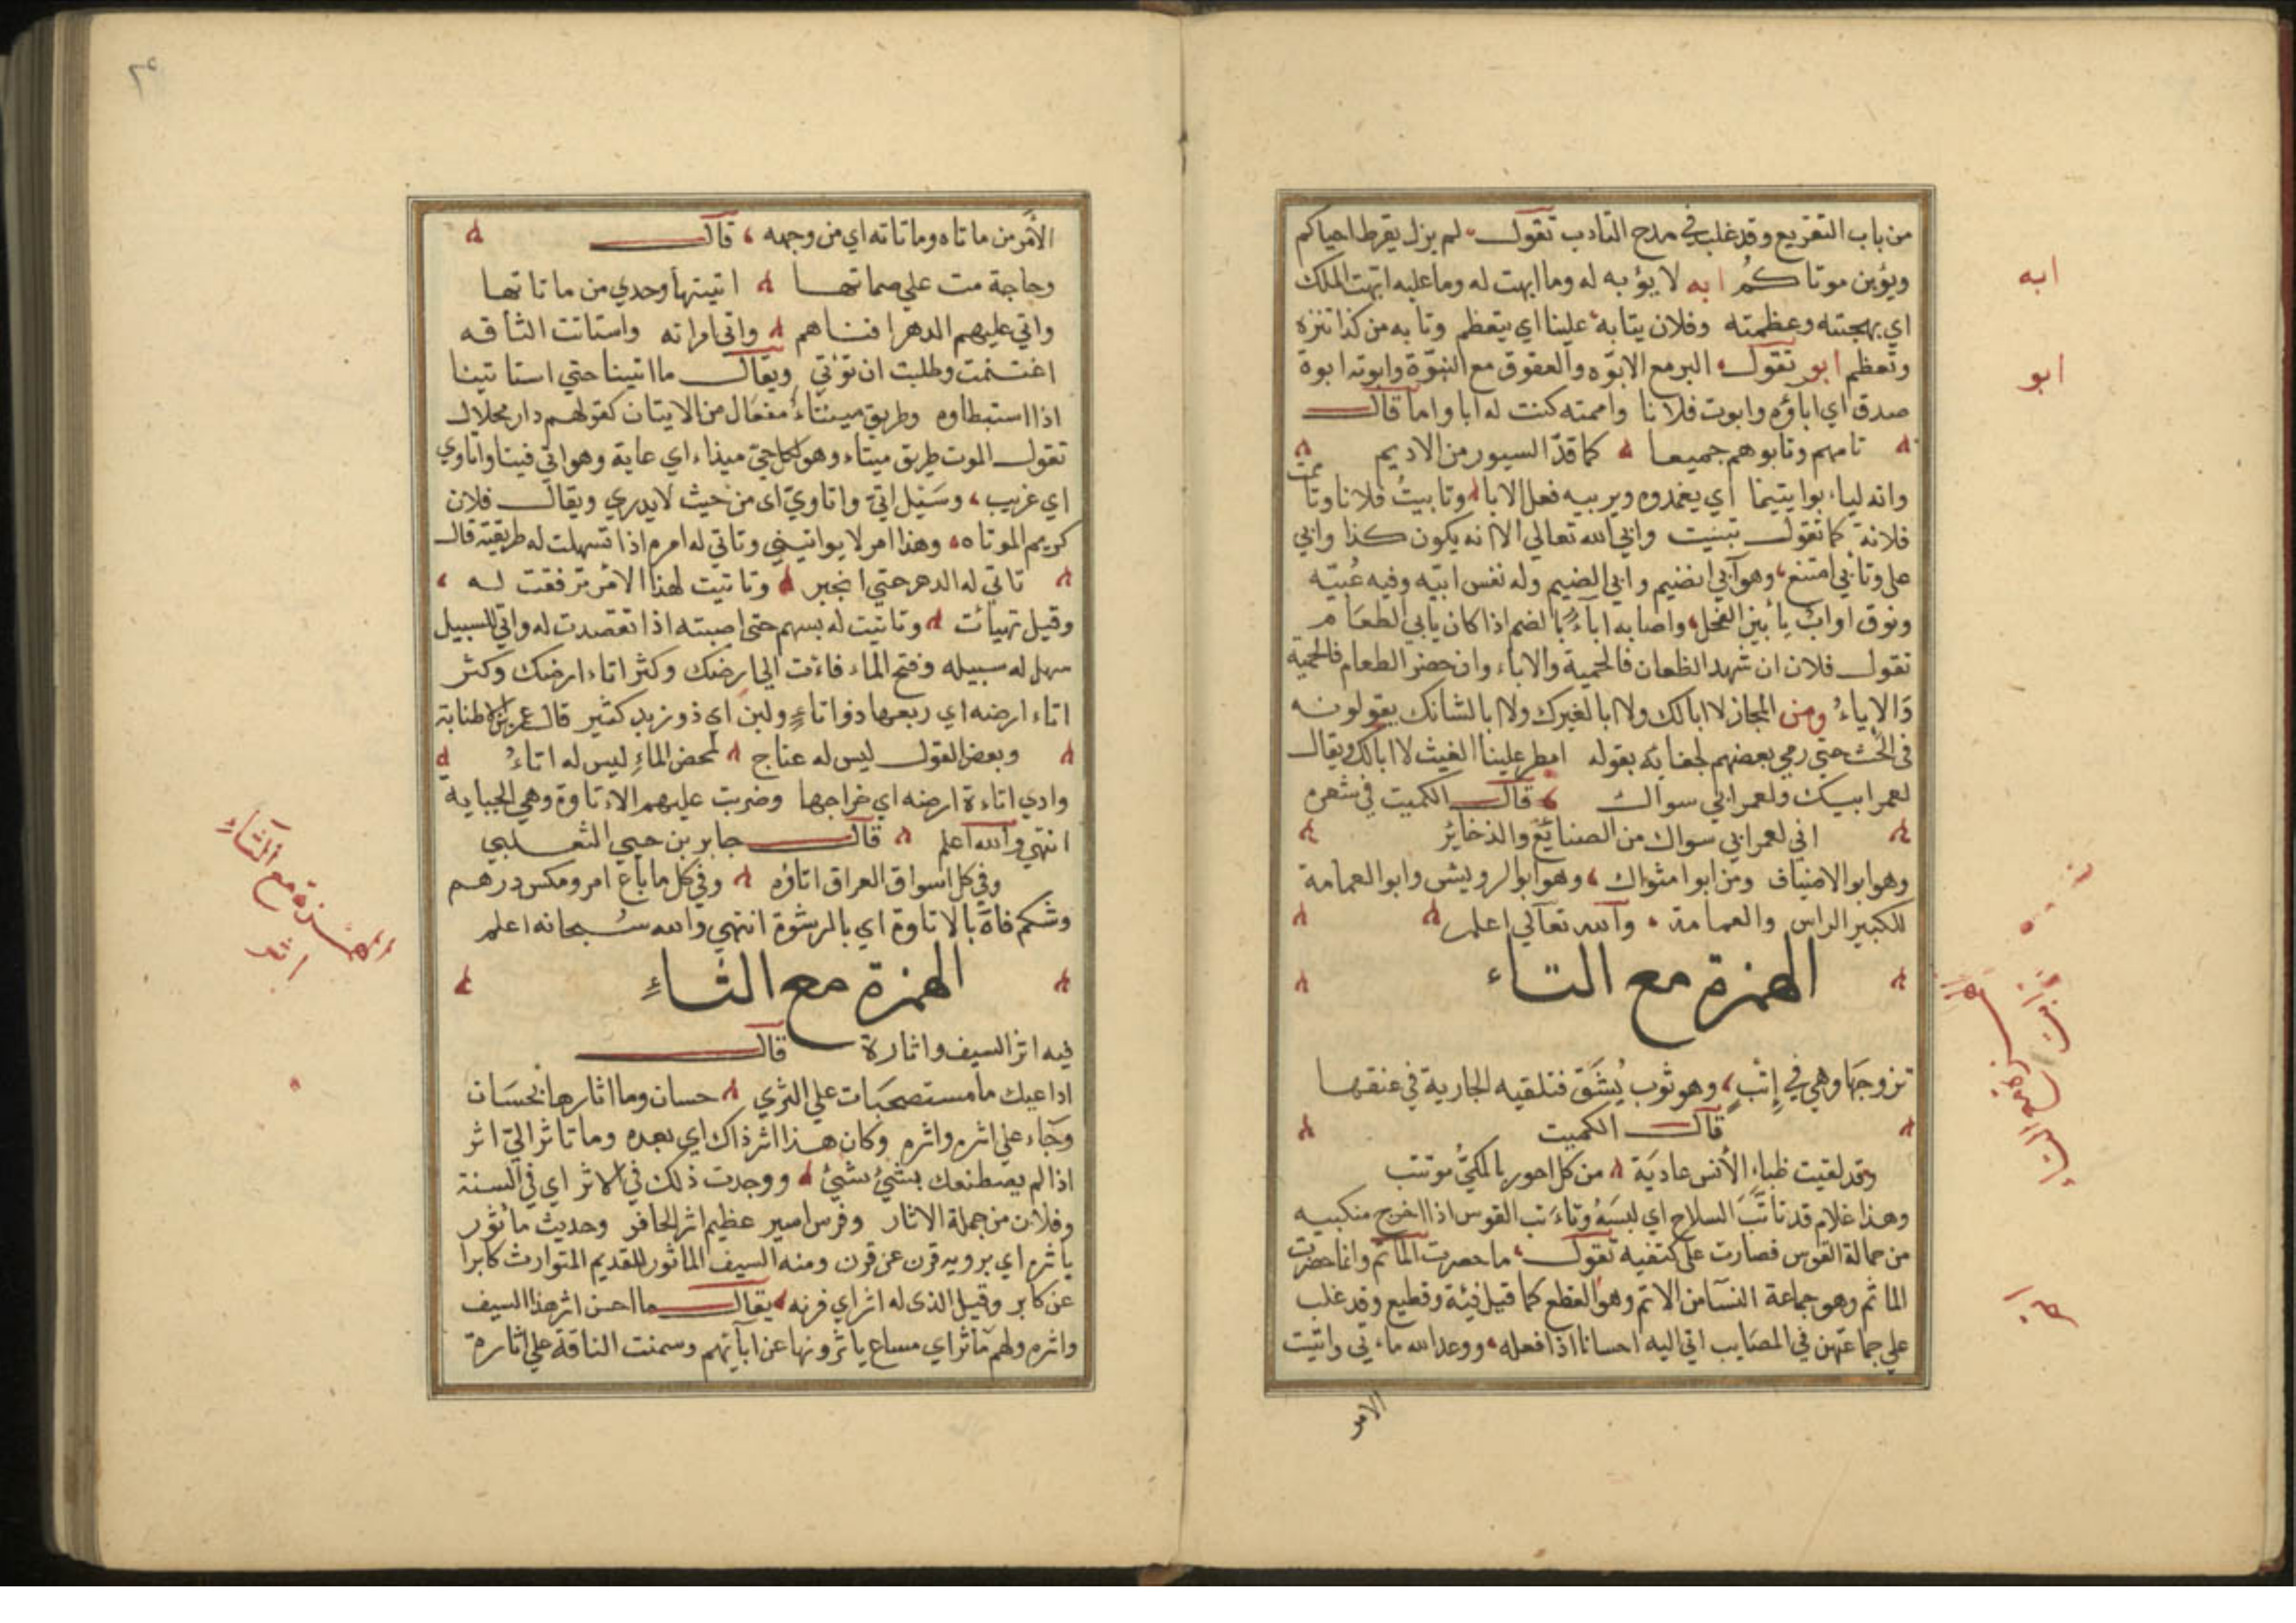 من باب التقريع وقد غلب في مدح النادب تقول لم يزل يقرظ احياكم
ويؤبن موتاكم ابه لا يؤبه له وما ابهت له وما عليه ابهت الملك
اي بهجته وعظمته وفلان يتابه علينا اي يتعظم وتابه من كذا تنزه
وتعظم ابو تقول البر مع الابوه والعقوق مع البنوة وابوته ابوة
صدق اي اباؤه وابوت فلانا واممته كنت له ابا واما قال
تامهم وتابوهم جميعا كما قد السيور من الاديم
وانه لياءبوا يتيما اي يغذوه ويربيه فعل الابا وتابيت فلانا وتاممت
فلانة كما تقول تبنيت وابي الله تعالي الا انه يكون كذا وابي
علي وتابي امتنع وهو آبي الضيم وابي الضيم وله نفس ابيه وفيه عبيه
ونوق اواب يأبين الفحل واصابه اباء بالضم اذا كان يابي الطعام
تقول فلان ان شهد الظعان فالحمية والاباء وان حضر الطعام فالحمية
والاباء ومن المجاز لا ابا لك ولا ابا لغيرك ولا ابا لشانك يقولونه
في الحث حتي رمي بعضهم لجفائه بقوله امطر علينا الغيث لا ابا لك ويقال
لعمر ابيك ولعمر ابي سواك قال الكميت في شعره
اني لعمر ابي سواك من الصنايع والذخائر
وهو ابو الاضياف ومن ابوا مثواك وهو ابو الرويش وابو العمامة
للكبير الراس والعمامة والله تعالي اعلم
الهمزة مع التاء
تزوجها وهي في إتب وهو ثوب يشق فتلقيه الجارية في عنقها
قال الكميت
وقد لقيت ظباء الأنس عادية من كل احور بالمكي موتتب
وهذا غلام قد تأتب السلاح اي لبسه وتاءتب القوس اذا اخرج منكبيه
من حمالة القوس فصارت علي كتفيه تقول ما حضرت الماتم وانما حضرت
الماثم وهو جماعة النسآ من الاتم وهو القطع كما قيل فيئة وقطيع وقد غلب
علي جماعتهن في المصايب اتي اليه احسانا اذا فعله ووعد الله ماءتي واتيت
الامر
ابه
ابو
الأمر من ماتاه وماتاته اي من وجهه قال
وحاجة مت علي صماتها اتيتها وحدي من ماتاتها
واتي عليهم الدهر افناهم واتي امراته واستاتت الناقه
اغتلمت وطلبت ان توتي ويقال ما اتيتنا حتي استاتينا
اذا استبطاوه وطريق ميتاء مفعال من الايتان كقولهم دار محلال
تقول الموت طريق ميتاء وهو لكل حي ميداء اي غاية وهو اتي فينا واتاوي
اي غريب وسيل اتي واتاوي اي من حيث لا يدري ويقال فلان
كريم المواتاه وهذا امر لا يواتيني وتاتي له امره اذا تسهلت له طريقته قال
تاتي له الدهر حتي انجبر وتاتيت لهذا الامر ترفقت له
وقيل تهيأت وتاتيت له بسهم حتي اصبته اذا تقصدت له واتي للسبيل
سهل له سبيله وفتح الماء فاءت الي ارضك وكثر اتاء ارضك وكثر
اتاء ارضه اي ريعها ذو اتاء ولبن اي ذو زبد كثير قال عمرو بن الاطنابة
وبعض القول ليس له عناج كمخض الماء ليس له اتاء
وادي اتاءة ارضه اي خراجها وضربت عليهم الاءتاوة وهي الجباية
انتهي والله اعلم قال جابر بن حيي الثعلبي
وفي كل اسواق العراق اتاؤه وفي كل ما باع امرو مكس درهم
وشكم فاه بالاتاوة اي بالرشوة انتهي والله سبحانه اعلم
الهمزة مع الثاء
فيه اثر السيف واثارة قال
اداعيك ما مستصحبات علي الثري حسان وما اثارها بحسان
وجاء علي اثره واثره وكان هذا اثر ذاك اي بعده وما تاثر الي اثر
اذا لم يصطنعك بشئ بشئ ووجدت ذلك في الاثر اي في السنة
وفلان من جملة الاثار وفرس اسير عظيم اثر الحافر وحديث ماثور
ياثره اي يرويه قرن عن قرن ومنه السيف الماثور للقديم المتوارث كابرا
عن كابر وقيل الذي له اثر اي فرنه يقال ما احسن اثر هذا السيف
واثره ولهم ماثر اي مساع ياثرونها عن ابآيهم وسمنت الناقة علي اثارة
الهمزة مع الثاء
اثر